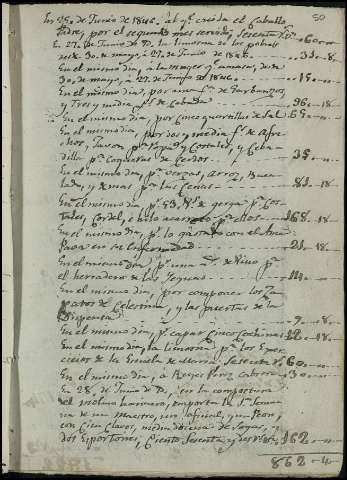 50
En 25. de Junio de 1846. al qe. cuida el Caballo
Padre, por el segundo mes servido, Sesenta Rs. 60
En 27. de Junio de Do. la limosna de los pobres
desde 30. de mayo, à 27. de Junio de 1846. 33 8
En el mismo dia, à la muger qe. amasa, desde
30. de mayo, à 27. de Junio de 1846. 15
En el mismo dia, por una fa. de Garbanzos,
y Tres y media fs. de Cebada 96 18
En el mismo dia, por cinco quartillas de Sal 65
En el mismo dia, por dos y media fs. de Afre
chos, Javon pa. Ropa, y Costales, y Ceba
dilla pa. Cerdos 35
En el mismo dia, pr. verzas, Arros,
y mas pa. las Cenas 81 18
En el mismo dia, pr. 83. Vs. de gerga pa. Cos
tales, Cordel, è hilo pa. ellos 168 18
En el mismo dia, pr. lo gastado con el Ama
en su Enfermedad 21 18
En el mismo dia, pr. una de Vino pa.
el herrador de las Yeguas 14
En el mismo dia, por componer los Za
patos de Celestina, y las puertas de la
Dispensa 9 18
En el mismo dia, pr. capar Cinco 12 18
En el mismo dia, la Limosna pr. los Exer
cicios de la Escuela de Maria, Sesenta Rs. 60
En el mismo dia, à Reyes Perez Cabrero 30
En 28. de Junio de Do. en la compostura
el molino harinero, importa la Sa. Sema
na de un Maestro, un oficial, y un Peon,
con Cien Clavos, media docena de Sogas, y
dos Esportones, Ciento Sesenta y dos Rs. 162
862 4